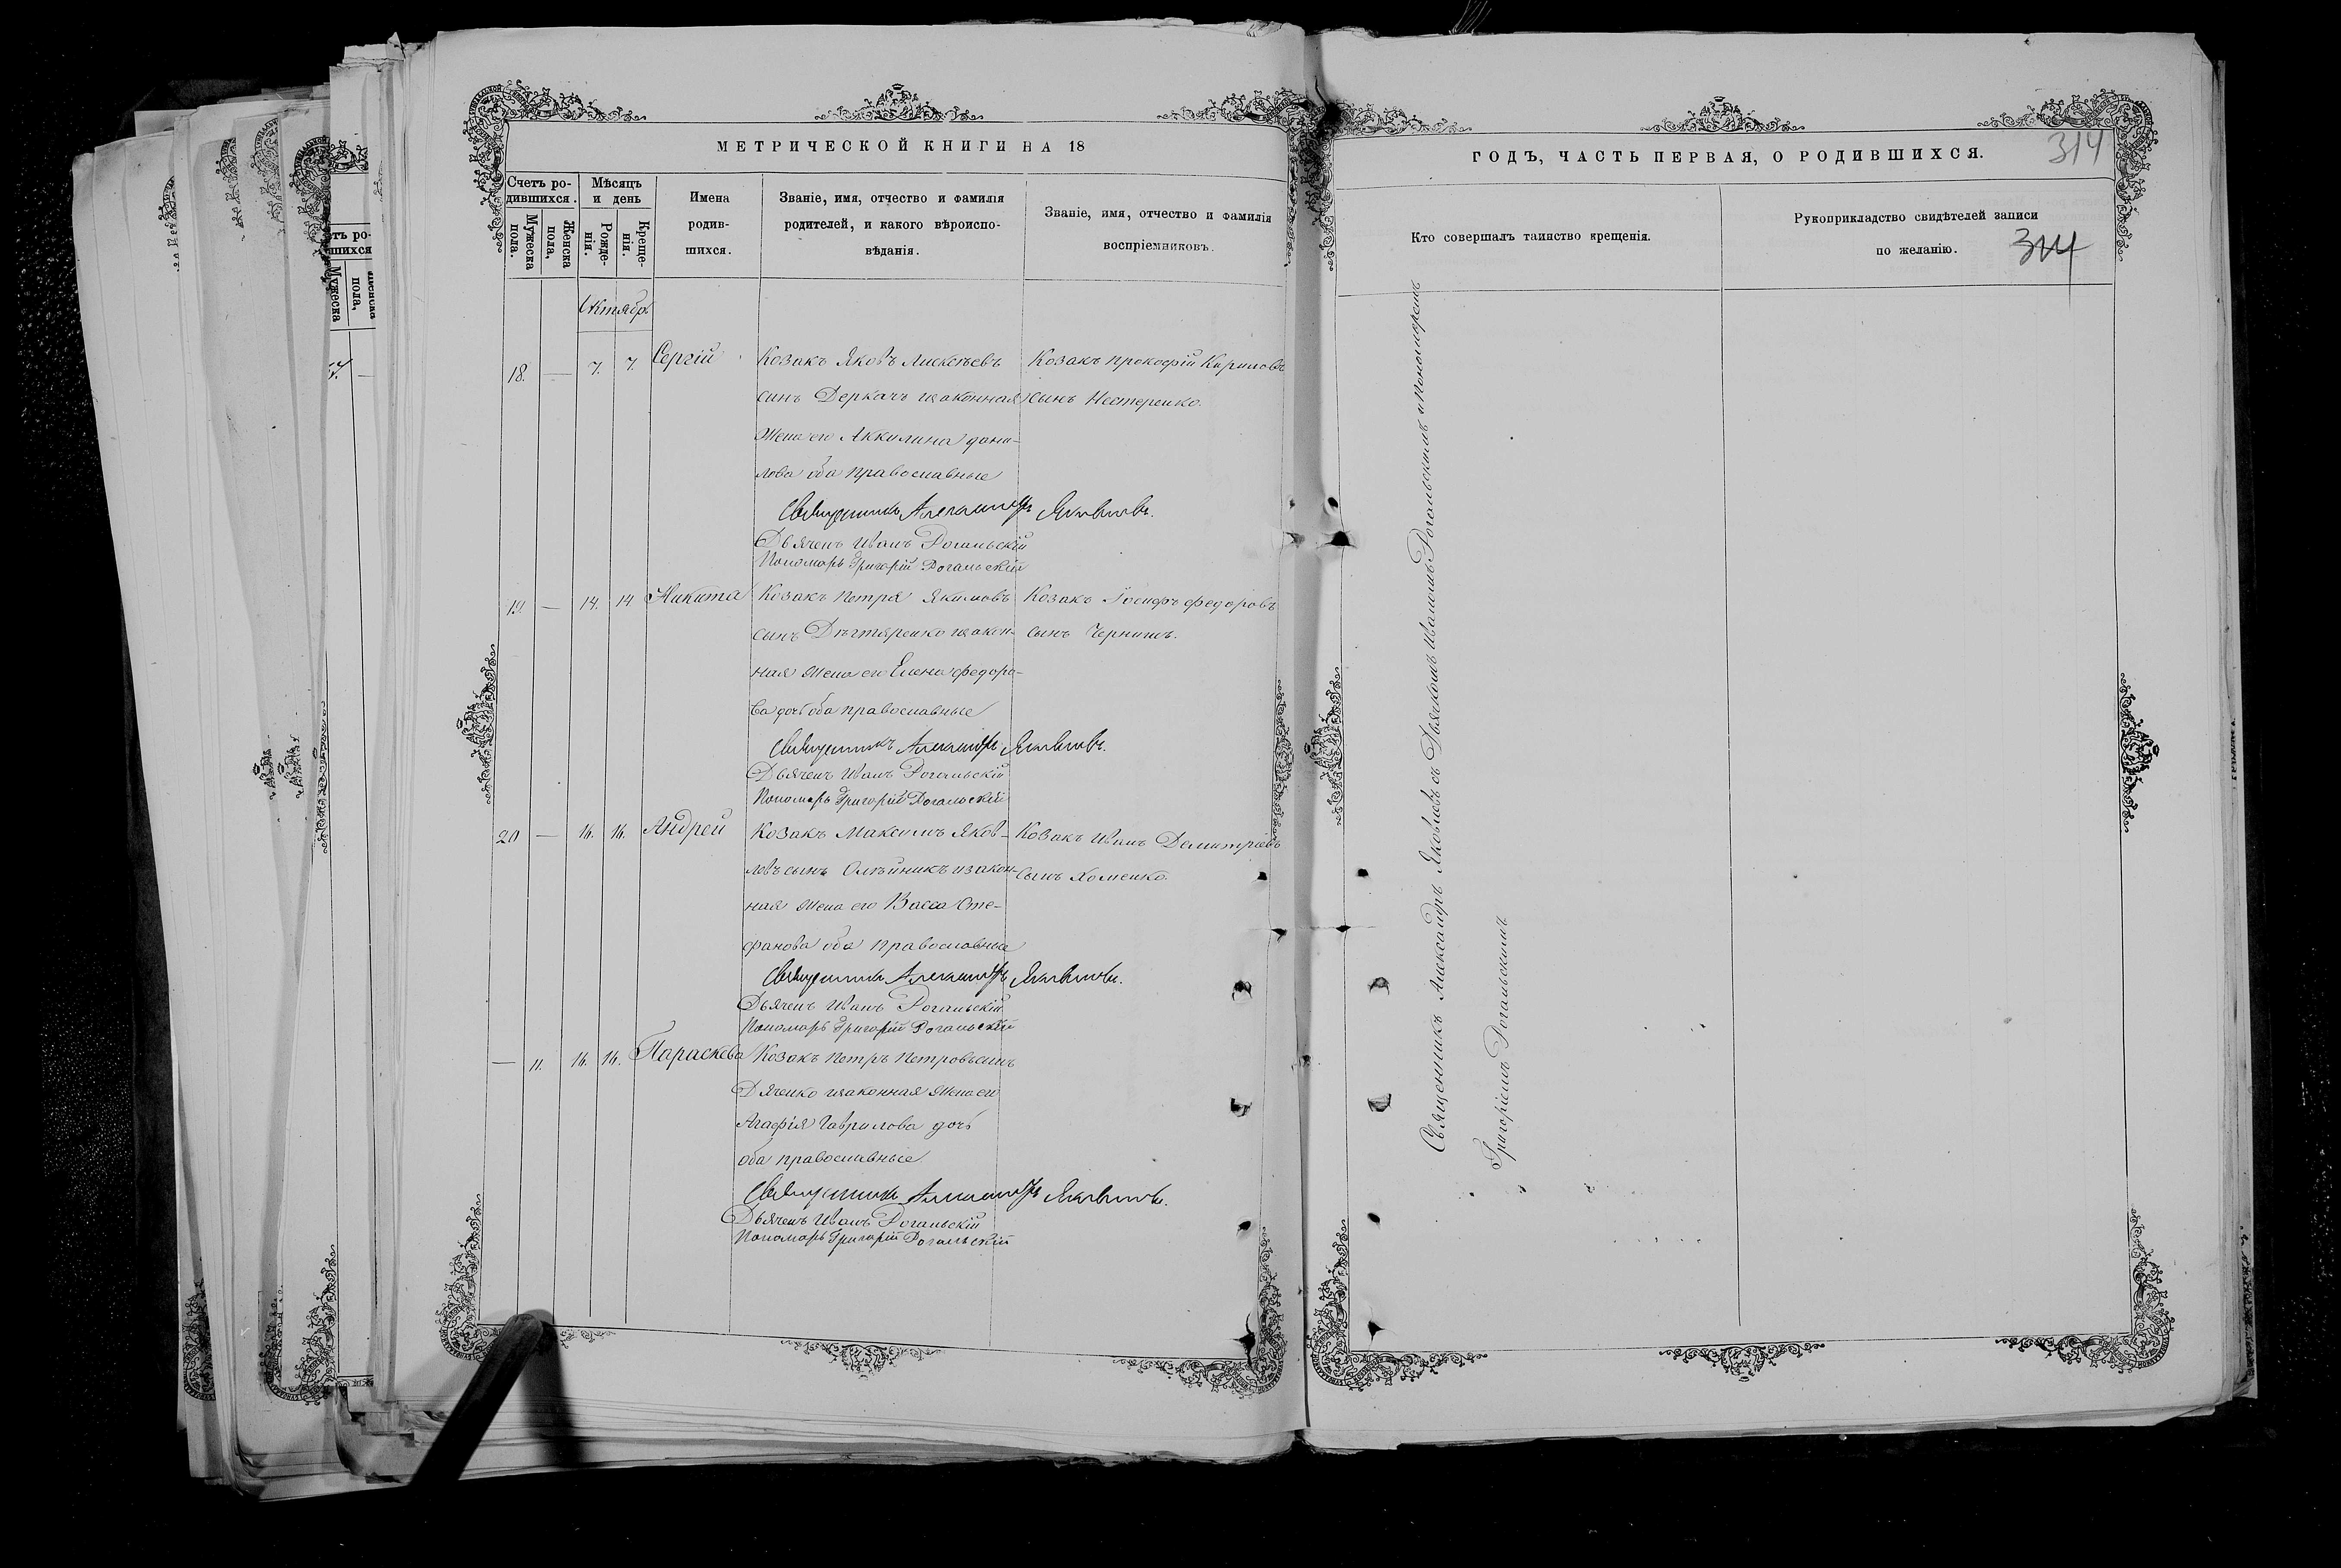 МЕТРИЧЕСКОЙ КНИГИ НА 18
Счетъ ро-
дившихся.
Мужеска
пола.
Женска
пола,
Мѣсяцъ
и день
Рожде-
нія.
Креще-
нія.
Имена
родив-
шихся.
Званіе, имя, отчество и фамилія
родителей, и какого вѣроиспо-
вѣданія.
Званіе, имя, отчество и фамилія
воспріемниковъ.
Октябрь
18. — 7. 7. Сергій
Козакъ Яковъ Алексѣевъ
сынъ Деркачъ изаконная
Жена его Аккилина дани-
лова оба православные
Козакъ Прокофій Кириловъ
сынъ Нестеренко.
Священникъ Александръ Яковлевъ.
Дьячекъ Иванъ Рогальскій
Пономарь Григорій Рогальскій
19. — 14. 14 Никита
Козакъ Петръ Якимовъ
сынъ Дѣгтяренко изакон-
ная Жена его Елена федоро-
ва дочь оба православные
Козакъ Іосифъ федоровъ
сынъ Чернишъ.
Священникъ Александръ Яковлевъ.
Дьячекъ Иванъ Рогальскій
Пономарь Григорій Рогальскій
20 — 16. 16. Андрей
Козакъ Максимъ Яков-
левъ сынъ Олѣйникъ изакон-
ная Жена его Васса Сте-
фанова оба православные
Козакъ Иванъ Демитріевъ
сынъ Хоменко.
Священникъ Александръ Яковлевъ.
Дьячекъ Иванъ Рогальскій
Пономарь Григорій Рогальскій
— 11. 16. 16. Параскева
Козакъ Петръ Петровъ сынъ
Дяченко изаконная Жена его
Агафія Гаврилова дочь
оба православные
Священникъ Александръ Яковлевъ.
Дьячекъ Иванъ Рогальскій
Пономарь Григорій Рогальскій
ГОДЪ, ЧАСТЬ ПЕРВАЯ, О РОДИВШИХСЯ.
314
Кто совершалъ таинство крещенія.
Рукоприкладство свидѣтелей записи
по желанію.
314
Священникъ Александръ Яковлевъ съ Дьячкомъ Иваномъ Рогальскимъ и Пономаремъ
Григоріемъ Рогальскимъ